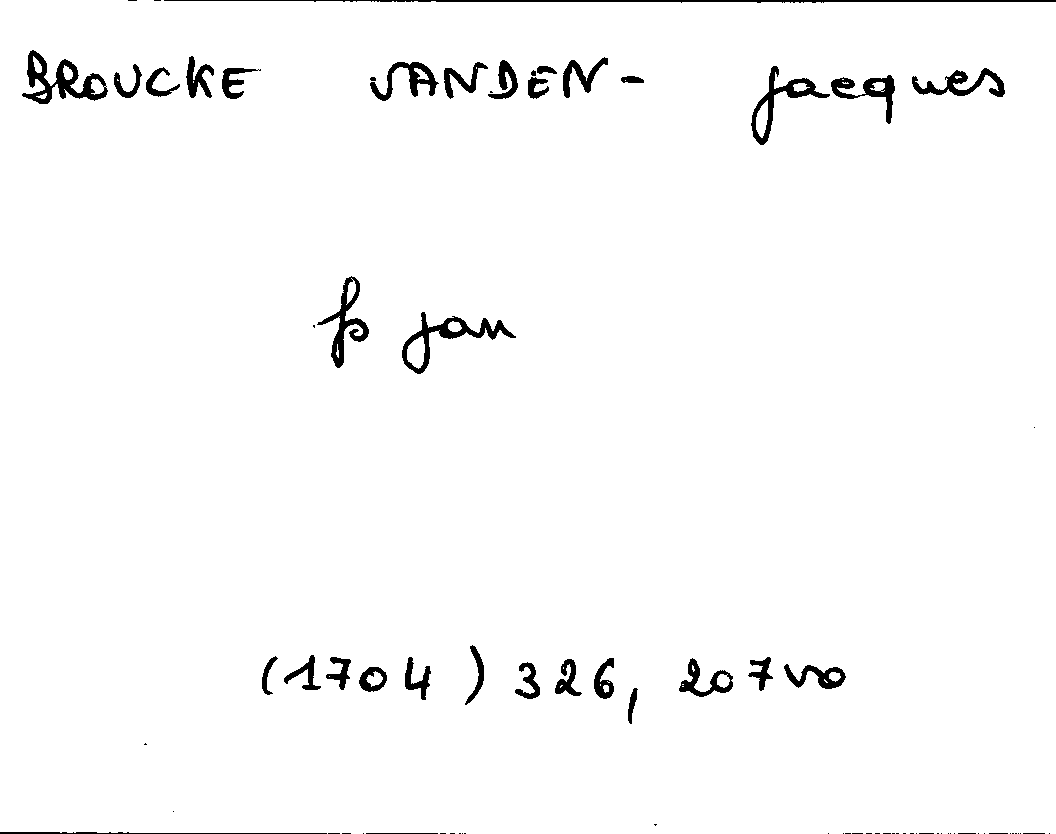 BROUCKE VANDEN- Jacques
fs Jan
(1704) 326, 207vo